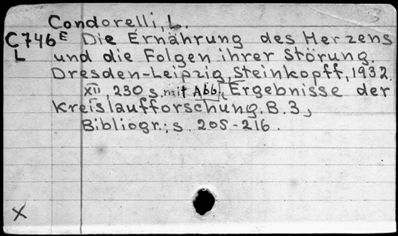 Condorelli, L.
C746 E Die Ernährung des Herzens
L und die Folgen ihrer Störung.
Dresden-Leipzig, Steinkopff, 1932.
XII, 230 s. mit Abb. Ergebnisse der
Kreislaufforschung. B. 3,
Bibliogr.: s. 205-216.
X